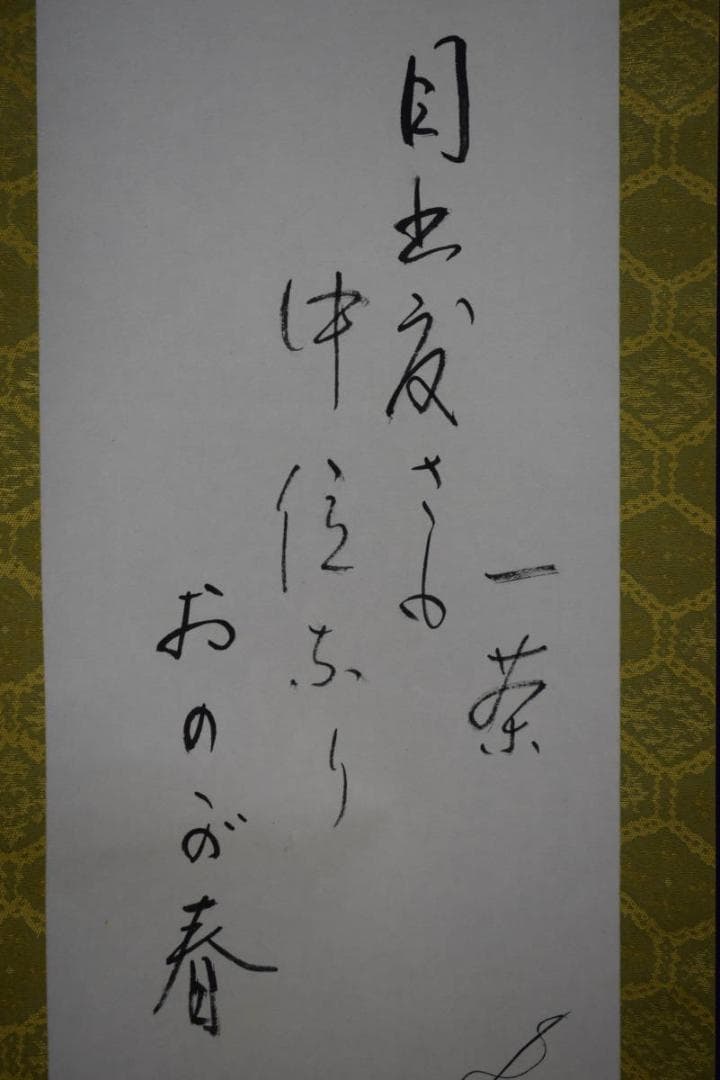 一茶
目出度さも
中位なり
おのが春